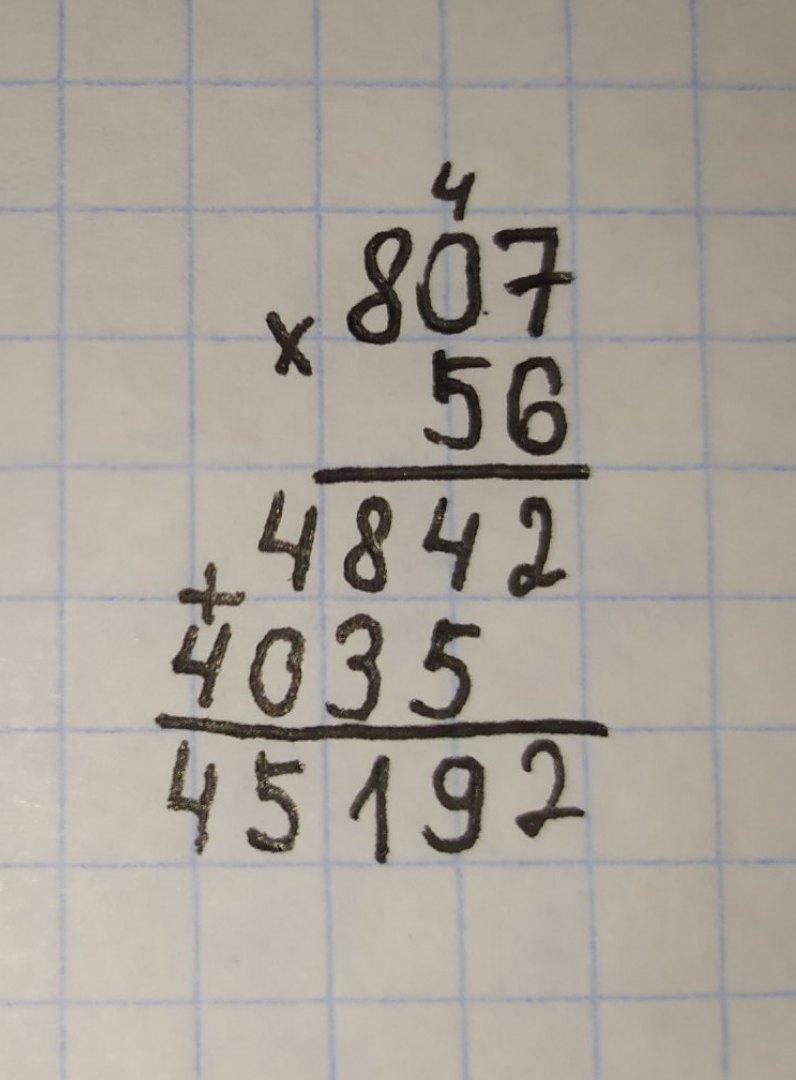 4
807
×
56
4842
+
4035
45192